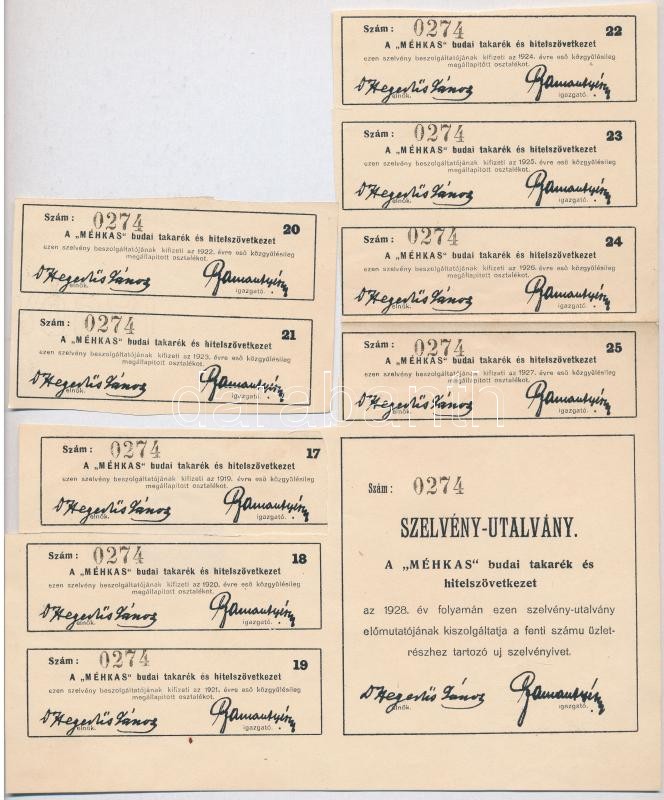 Szám: 0274 22
A „MÉHKAS" budai takarék és hitelszövetkezet
ezen szelvény beszolgáltatójának kifizeti az 1924. évre eső közgyűlésileg
megállapított osztalékot.
Dr Hegedűs János
elnök.
igazgató.
Szám: 0274 23
A „MÉHKAS" budai takarék és hitelszövetkezet
ezen szelvény beszolgáltatójának kifizeti az 1925. évre eső közgyűlésileg
megállapított osztalékot.
Dr Hegedűs János
elnök.
igazgató.
Szám: 0274 20
A „MÉHKAS" budai takarék és hitelszövetkezet
ezen szelvény beszolgáltatójának kifizeti az 1922. évre eső közgyűlésileg
megállapított osztalékot.
Dr Hegedűs János
elnök.
igazgató.
Szám: 0274 24
A „MÉHKAS" budai takarék és hitelszövetkezet
ezen szelvény beszolgáltatójának kifizeti az 1926. évre eső közgyűlésileg
megállapított osztalékot.
Dr Hegedűs János
elnök.
igazgató.
Szám: 0274 21
A „MÉHKAS" budai takarék és hitelszövetkezet
ezen szelvény beszolgáltatójának kifizeti az 1923. évre eső közgyűlésileg
megállapított osztalékot.
Dr Hegedűs János
elnök.
igazgató.
Szám: 0274 25
A „MÉHKAS" budai takarék és hitelszövetkezet
ezen szelvény beszolgáltatójának kifizeti az 1927. évre eső közgyűlésileg
megállapított osztalékot.
Dr Hegedűs János
elnök.
igazgató.
darabanth
Szám: 0274 17
A „MÉHKAS" budai takarék és hitelszövetkezet
ezen szelvény beszolgáltatójának kifizeti az 1919. évre eső közgyűlésileg
megállapított osztalékot.
Dr Hegedűs János
elnök.
igazgató.
Szám: 0274 18
A „MÉHKAS" budai takarék és hitelszövetkezet
ezen szelvény beszolgáltatójának kifizeti az 1920. évre eső közgyűlésileg
megállapított osztalékot.
Dr Hegedűs János
elnök.
igazgató.
Szám: 0274 19
A „MÉHKAS" budai takarék és hitelszövetkezet
ezen szelvény beszolgáltatójának kifizeti az 1921. évre eső közgyűlésileg
megállapított osztalékot.
Dr Hegedűs János
elnök.
igazgató.
Szám: 0274
SZELVÉNY-UTALVÁNY.
A „MÉHKAS" budai takarék és
hitelszövetkezet
az 1928. év folyamán ezen szelvény-utalvány
előmutatójának kiszolgáltatja a fenti számu üzlet-
részhez tartozó uj szelvényivet.
Dr Hegedűs János
elnök.
igazgató.